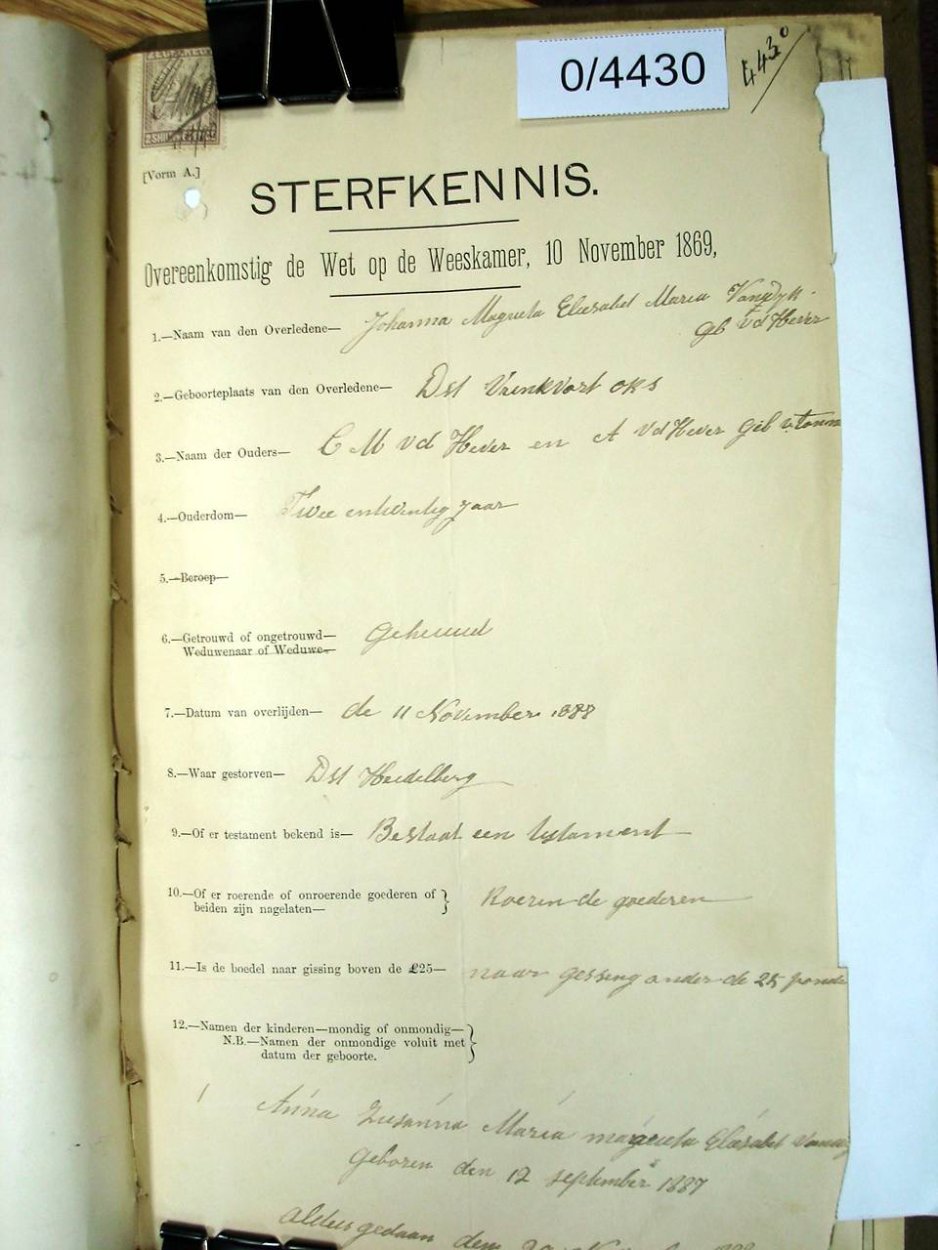 0/4430
4430
2 SHILLINGS
[Vorm A.]
STERFKENNIS.
Overeenkomstig de Wet op de Weeskamer, 10 November 1869,
1.—Naam van den Overledene— Johanna Magrieta Eliesabet Maria Vandyk
geb vd Hever
2.—Geboorteplaats van den Overledene— Dst Vrenkvort OKS
3.—Naam der Ouders— C M vd Hever en A vd Hever geb
4.—Ouderdom— Twee entwintig jaar
5.—Beroep—
6.—Getrouwd of ongetrouwd— Gehuud
Weduwenaar of Weduwe—
7.—Datum van overlijden— de 11 November 1888
8.—Waar gestorven— Dst Heidelberg
9.—Of er testament bekend is— Bestaat een testament
10.—Of er roerende of onroerende goederen of } Roerende goederen
beiden zijn nagelaten—
11.—Is de boedel naar gissing boven de £25— naar gessing onder de 25 ponds
12.—Namen der kinderen—mondig of onmondig— }
N.B.—Namen der onmondige voluit met
datum der geboorte.
1 Anna Zusanna Maria magrieta Eliesabet
Geboren den 12 september 1887
Aldus gedaan dem